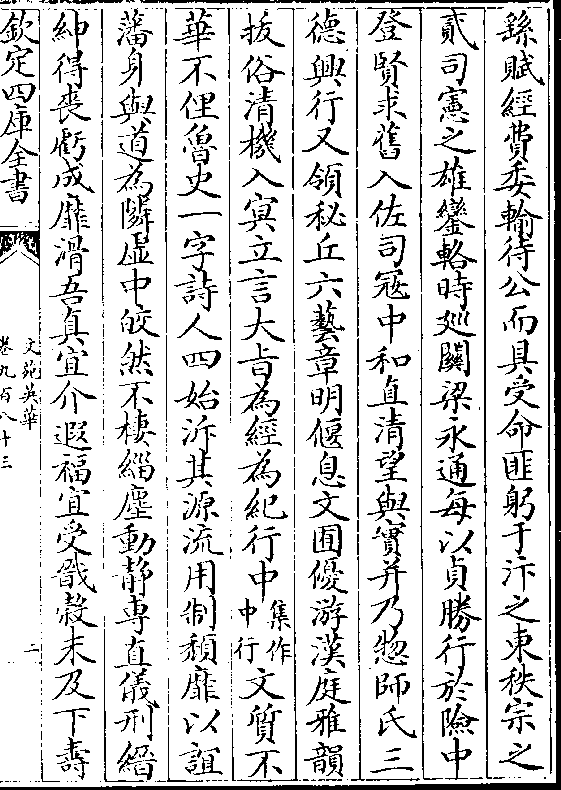 繇賦經費委輸待公而具受命匪躬于汴之東秩宗之
貳司憲之雄鑾輅時廵關梁永通每以貞勝行於險中
登賢求舊入佐司寇中和直清望與實并乃惣師氏三
德興行又領秘丘六藝章明偃息文囿優游漢庭雅韻
拔俗清機入㝠立言大㫖為經為紀行中集作中行文質不
華不俚魯史一字詩人四始泝其源流用制頽靡以誼
藩身與道為隣虚中皎然不棲緇塵動静専直儀刑縉
紳得喪虧成靡滑吾真宜介遐福宜受戩榖未及下壽
欽定四庫全書
文苑英華
卷九百八十三
二